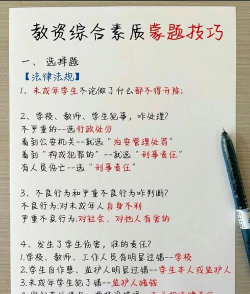 教资综合素质蒙题技巧
一、选择题
【法律法规】
1、未成年学生不论做了什么都不得开除;
2、学校、教师、学生犯事,咋处理?
不严重的--选行政处分
看到公安机关--就选"治安管理处罚"
看到"构成犯罪的"--就选"刑事责任"
有人员伤亡--选"刑事责任"
3、不良行为和严重不良行为咋判断?
不良行为:对未成年人自身不利
严重不良行为:对社会、对他人有害的
4、发生了学生伤害,谁的责任?
1.学校、教师、工作人员有明显过错--学校
2.学生自作意、监护人明显过错--学生本人或监护人
3.未成年学生犯了错--监护人赔偿